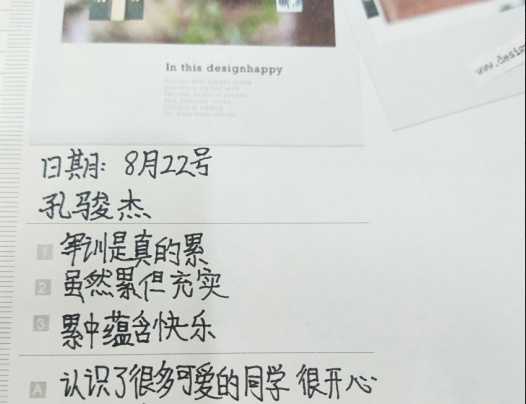 In this designhappy
www.desi
日期: 8月22号
孔骏杰
1 军训是真的累
2 虽然累但充实
3 累中蕴含快乐
A 认识了很多可爱的同学 很开心